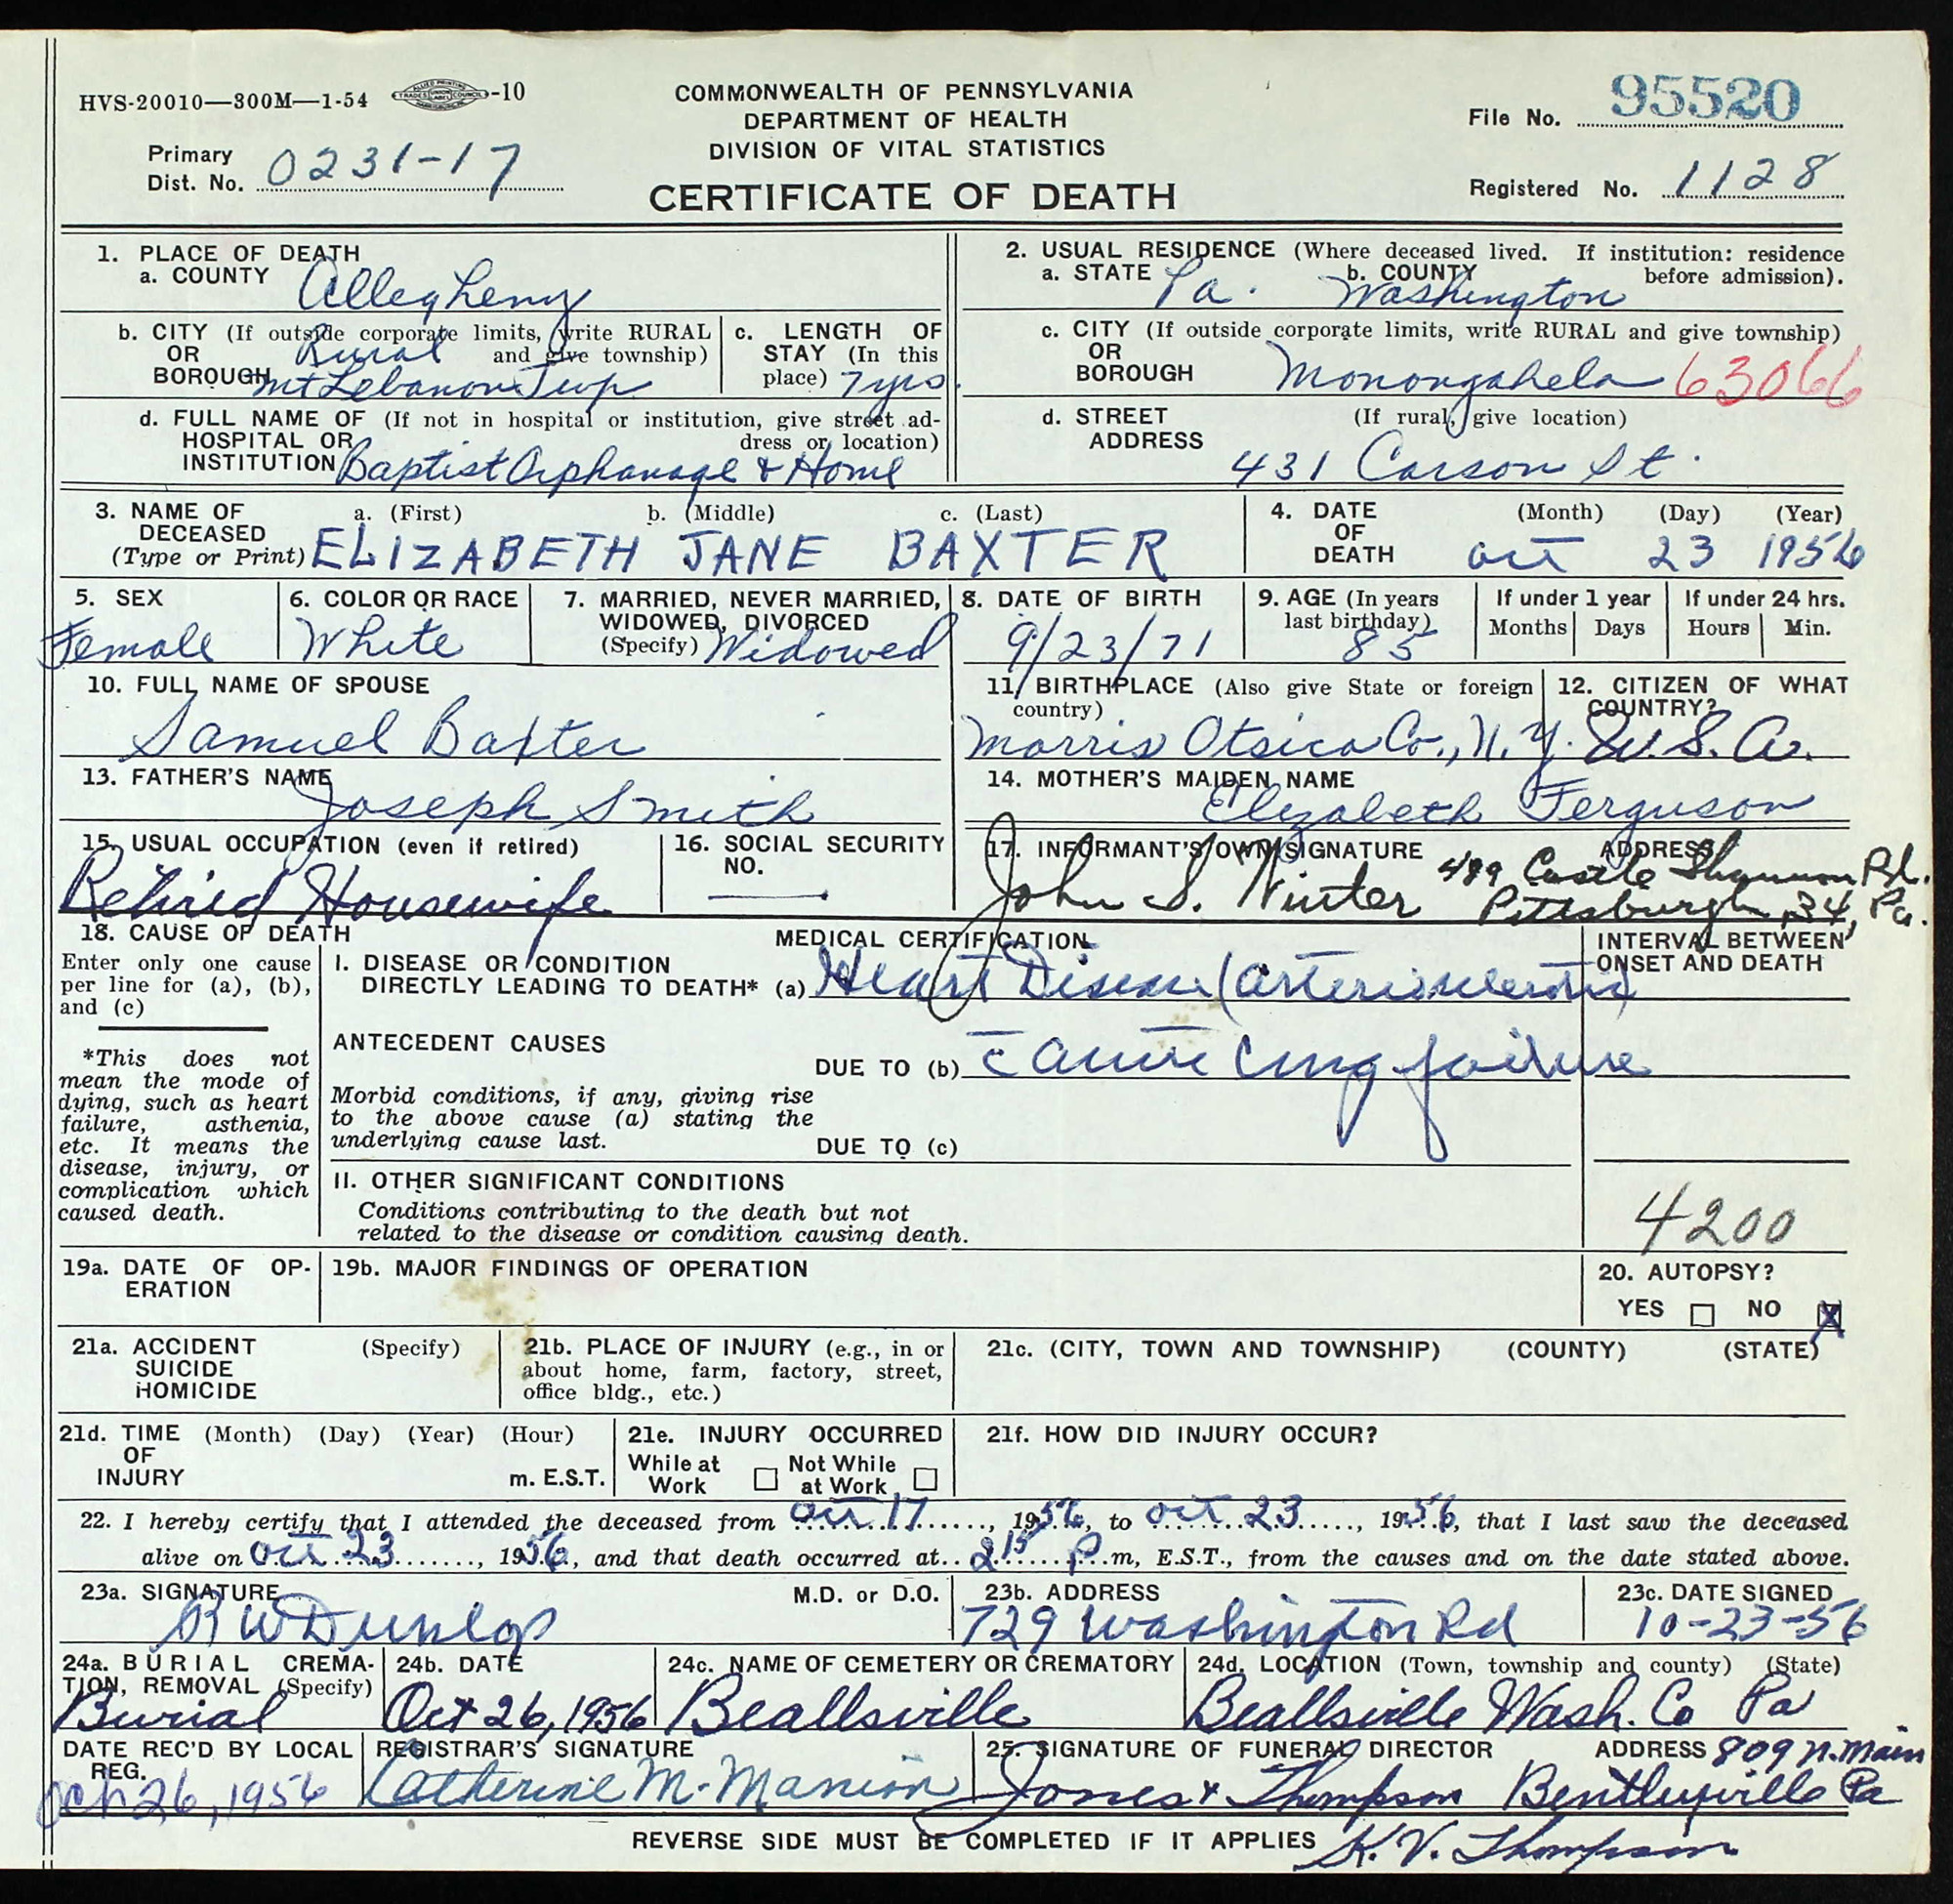 HVS-20010—300M—1-54 -10
COMMONWEALTH OF PENNSYLVANIA
DEPARTMENT OF HEALTH
DIVISION OF VITAL STATISTICS
CERTIFICATE OF DEATH
File No. 95520
Primary Dist. No. 0231-17
Registered No. 1128
1. PLACE OF DEATH
a. COUNTY Allegheny
b. CITY (If outside corporate limits, write RURAL and give township)
OR BOROUGH Rural
Mt Lebanon Twp
c. LENGTH OF STAY (In this place) 7 yrs.
d. FULL NAME OF (If not in hospital or institution, give street address or location)
HOSPITAL OR INSTITUTION Baptist Orphanage & Home
2. USUAL RESIDENCE (Where deceased lived. If institution: residence before admission).
a. STATE Pa. b. COUNTY Washington
c. CITY (If outside corporate limits, write RURAL and give township)
OR BOROUGH Monongahela 63066
d. STREET ADDRESS (If rural, give location)
431 Carson St.
3. NAME OF DECEASED (Type or Print) a. (First) b. (Middle) c. (Last)
ELIZABETH JANE BAXTER
4. DATE OF DEATH (Month) (Day) (Year)
Oct 23 1956
5. SEX
Female
6. COLOR OR RACE
White
7. MARRIED, NEVER MARRIED, WIDOWED, DIVORCED (Specify) Widowed
8. DATE OF BIRTH
9/23/71
9. AGE (In years last birthday) 85
If under 1 year Months Days
If under 24 hrs. Hours Min.
10. FULL NAME OF SPOUSE
Samuel Baxter
11. BIRTHPLACE (Also give State or foreign country)
Morris Otsica Co., N.Y.
12. CITIZEN OF WHAT COUNTRY?
U.S.A.
13. FATHER'S NAME
Joseph Smith
14. MOTHER'S MAIDEN NAME
Elizabeth Ferguson
15. USUAL OCCUPATION (even if retired)
Retired Housewife
16. SOCIAL SECURITY NO.
—
17. INFORMANT'S OWN SIGNATURE ADDRESS
John S. Winter 489 Castle Shannon Rd.
Pittsburgh, 34, Pa.
18. CAUSE OF DEATH
Enter only one cause per line for (a), (b), and (c)
*This does not mean the mode of dying, such as heart failure, asthenia, etc. It means the disease, injury, or complication which caused death.
MEDICAL CERTIFICATION
INTERVAL BETWEEN ONSET AND DEATH
I. DISEASE OR CONDITION DIRECTLY LEADING TO DEATH* (a) Heart Disease (arteriosclerotic)
ANTECEDENT CAUSES
DUE TO (b) c̄ acute cong failure
Morbid conditions, if any, giving rise to the above cause (a) stating the underlying cause last.
DUE TO (c)
II. OTHER SIGNIFICANT CONDITIONS
Conditions contributing to the death but not related to the disease or condition causing death.
4200
19a. DATE OF OPERATION
19b. MAJOR FINDINGS OF OPERATION
20. AUTOPSY?
YES NO X
21a. ACCIDENT SUICIDE HOMICIDE (Specify)
21b. PLACE OF INJURY (e.g., in or about home, farm, factory, street, office bldg., etc.)
21c. (CITY, TOWN AND TOWNSHIP) (COUNTY) (STATE)
21d. TIME OF INJURY (Month) (Day) (Year) (Hour) m. E.S.T.
21e. INJURY OCCURRED
While at Work Not While at Work
21f. HOW DID INJURY OCCUR?
22. I hereby certify that I attended the deceased from Oct 17, 1956, to Oct 23, 1956, that I last saw the deceased
alive on Oct 23, 1956, and that death occurred at 2 15 P m, E.S.T., from the causes and on the date stated above.
23a. SIGNATURE M.D. or D.O.
R W Dunlop
23b. ADDRESS
729 Washington Rd
23c. DATE SIGNED
10-23-56
24a. BURIAL CREMATION, REMOVAL (Specify)
Burial
24b. DATE
Oct 26, 1956
24c. NAME OF CEMETERY OR CREMATORY
Beallsville
24d. LOCATION (Town, township and county) (State)
Beallsville Wash. Co Pa
DATE REC'D BY LOCAL REG.
Oct 26, 1956
REGISTRAR'S SIGNATURE
Catherine M. Manion
25. SIGNATURE OF FUNERAL DIRECTOR ADDRESS 809 N. Main
Jones & Thompson Bentleyville Pa
REVERSE SIDE MUST BE COMPLETED IF IT APPLIES
K. V. Thompson